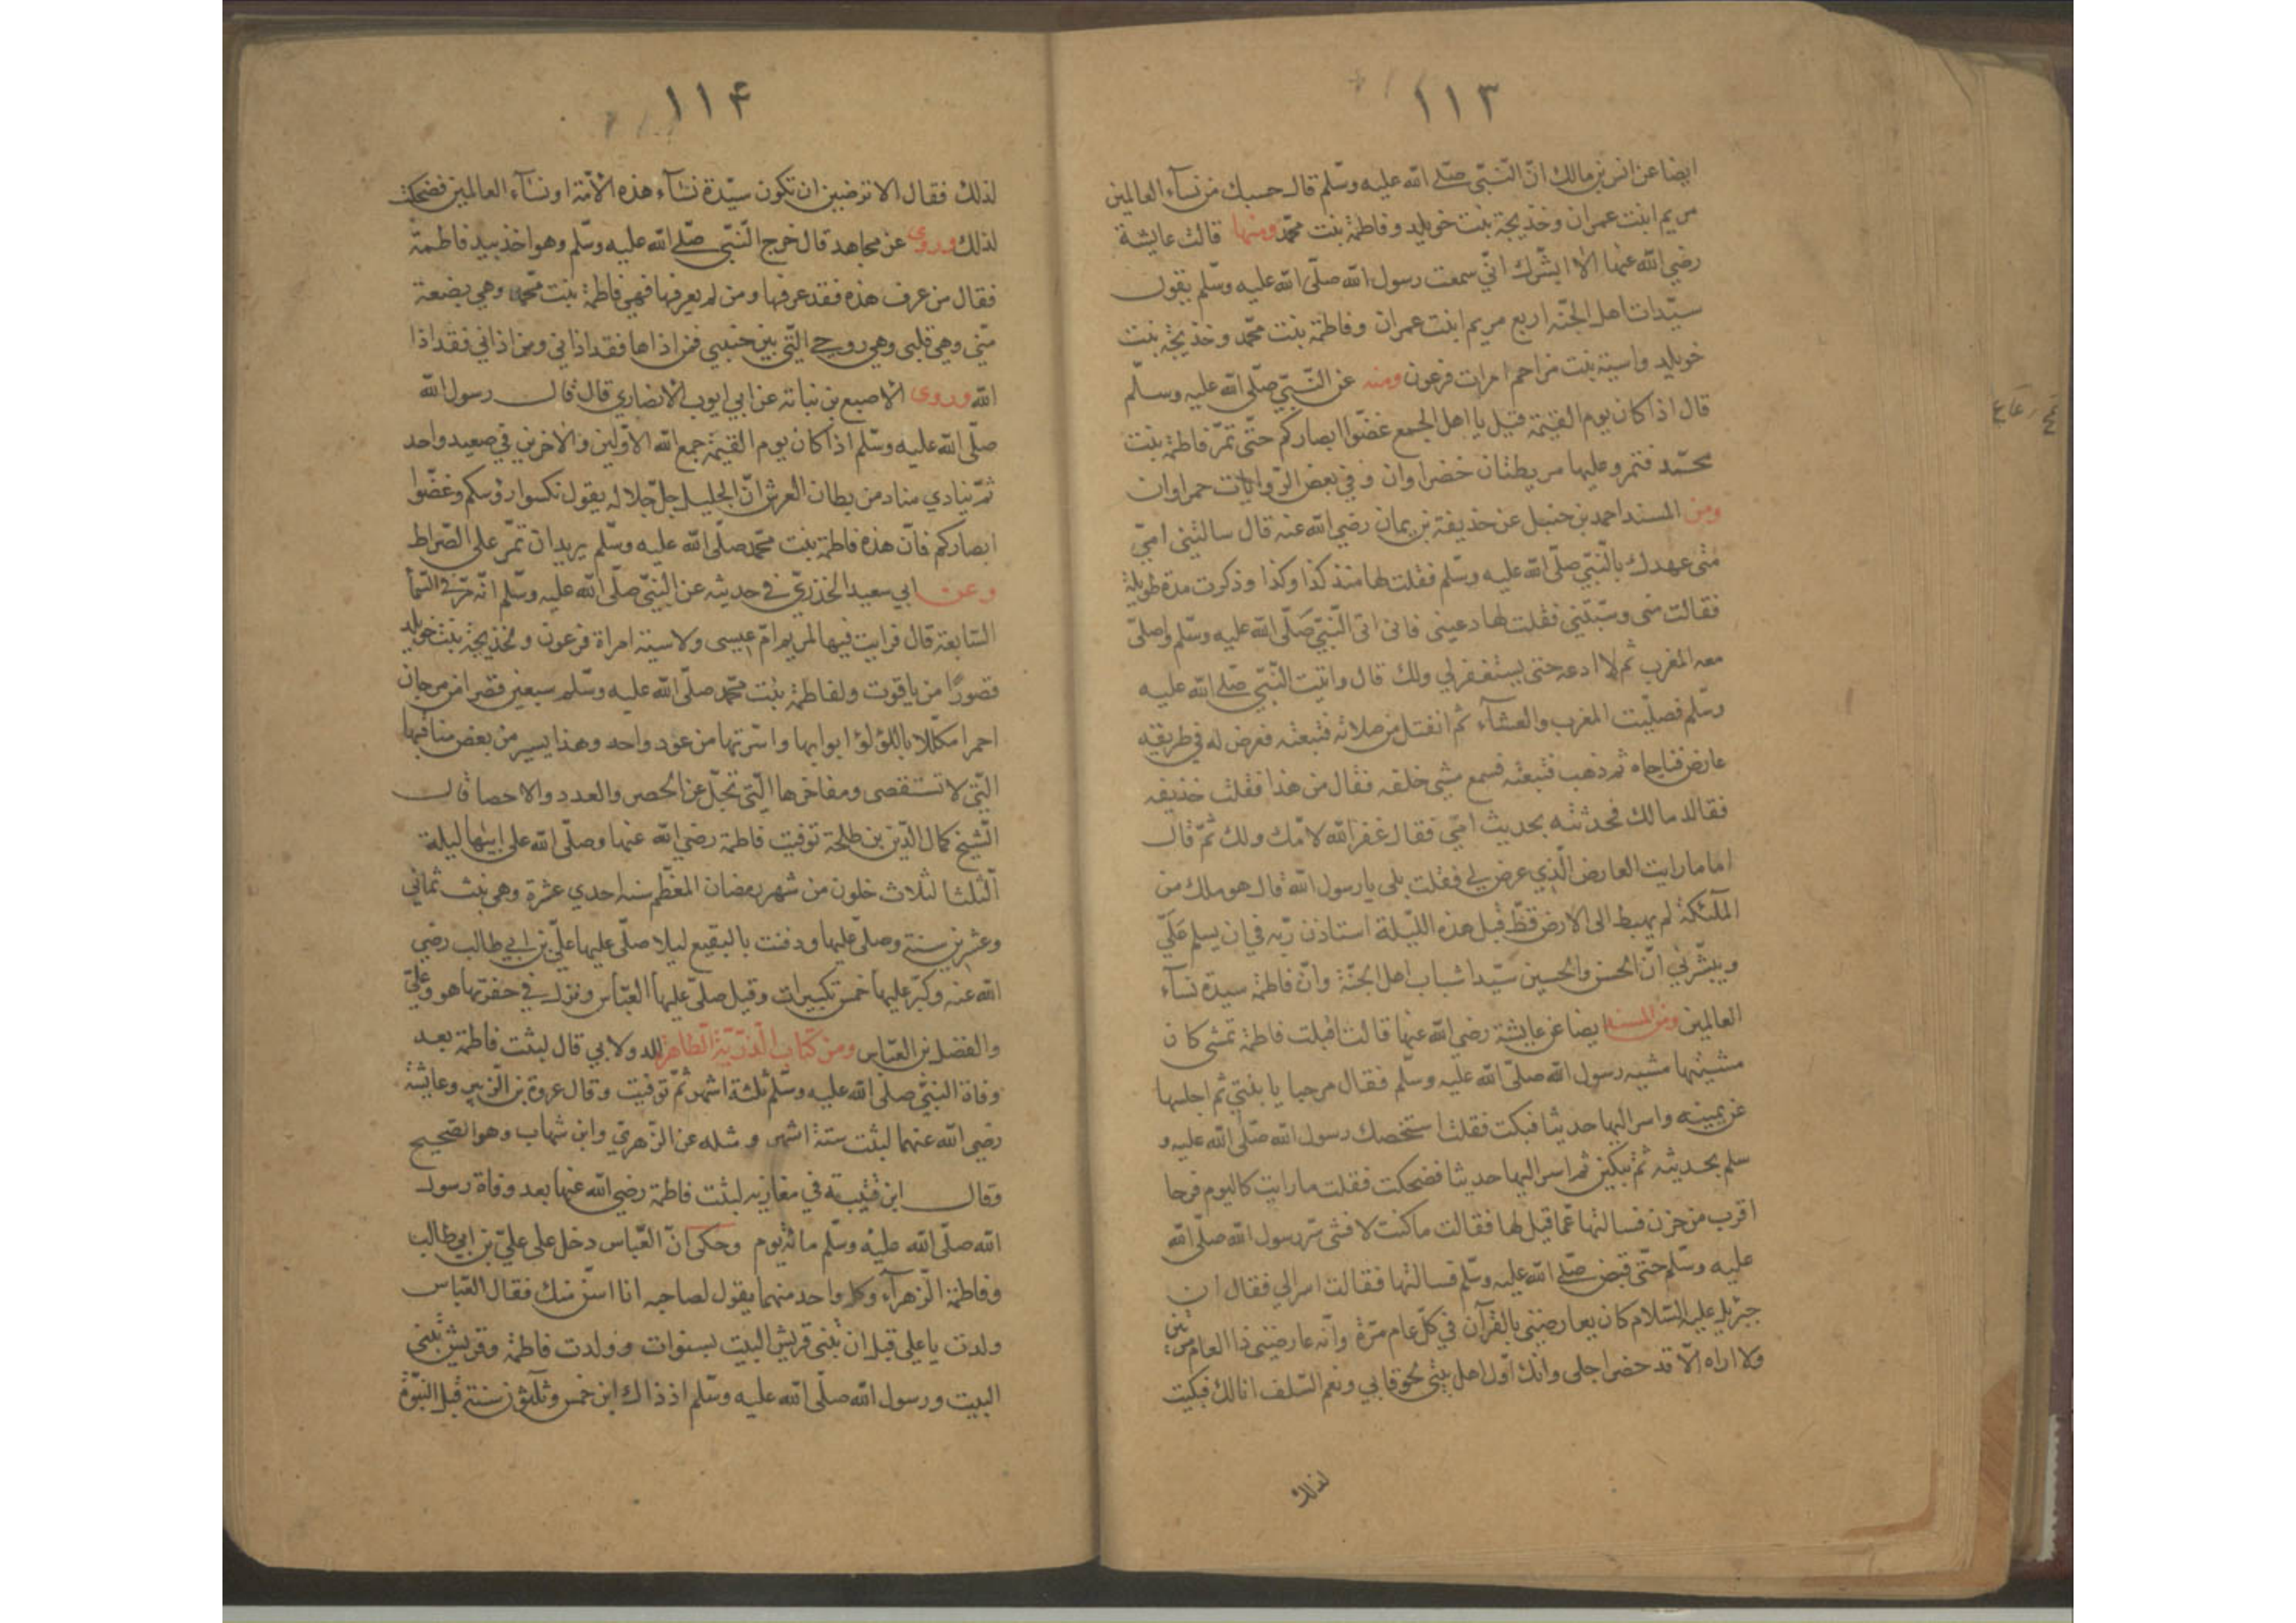 ١١٣
ايضا عن انس بن مالك انّ النّبىّ صلّى الله عليه وسلّم قال حسبك من نسآء العالمين
مريم ابنت عمران وخديجة بنت خويلد وفاطمة بنت محمّد ومنها قالت عايشة
رضي الله عنها الا ابشّرك انّي سمعت رسول الله صلّى الله عليه وسلّم يقول
سيّدات اهل الجنّة اربع مريم ابنت عمران وفاطمة بنت محمّد وخديجة بنت
خويلد واسية بنت مزاحم امرات فرعون ومنه عن النّبيّ صلّى الله عليه وسلّم
قال اذا كان يوم القيمة قيل يا اهل الجمع غضّوا ابصاركم حتّى تمرّ فاطمة بنت
محمّد فتمر وعليها مريطتان خضراوان وفي بعض الرّوايات حمراوان
ومن المسند احمد بن حنبل عن حذيفة بن يمان رضي الله عنه قال سالتني امّي
متى عهدك بالنّبيّ صلّى الله عليه وسلّم فقلت لها منذ كذا وكذا وذكرت مدة طويلة
فقالت منى وسبّتني فقلت لها دعيني فانى اتى النّبيّ صلّى الله عليه وسلّم واصلّى
معه المغرب ثم لا ادعه حتى يستغفر لي ولك قال واتيت النّبيّ صلّى الله عليه
وسلّم فصلّيت المغرب والعشآء ثم انفتل من صلاته فتبعته فعرض له في طريقه
عارض فناجاه ثم ذهب فتبعته فسمع مشيى خلفه فقال من هذا فقلت حذيفه
فقال مالك فحدثته بحديث امّي فقال غفر الله لامّك ولك ثمّ قال
اما رايت العارض الّذي عرض لي فقلت بلى يا رسول الله قال هو ملك من
الملئكة لم يهبط الى الارض قطّ قبل هذه اللّيلة استاذن ربّه في ان يسلم علَيّ
ويبشّرني انّ الحسن والحسين سيّدا شباب اهل الجنّة وانّ فاطمة سيدة نسآء
العالمين ومن المسند ايضا عن عايشة رضي الله عنها قالت اقبلت فاطمة تمشى كان
مشيتها مشيه رسول الله صلّى الله عليه وسلّم فقال مرحبا يا بنتي ثم اجلسها
عن يمينه واسر اليها حديثا فبكت فقلت استخصك رسول الله صلّى الله عليه و
سلم بحديثه ثم تبكين ثم اسر اليها حديثا فضحكت فقلت ما رايت كاليوم فرحا
اقرب من حزن فسالتها عمّا قيل لها فقالت ما كنت لافشى سرّ رسول الله صلّى الله
عليه وسلّم حتّى قبض صلّى الله عليه وسلّم فسالتها فقالت اسر الي فقال ان
جبرئيل عليه السّلام كان يعارضني بالقرآن في كلّ عام مرّة وانّه عارضنى ذا العام مرّتين
ولا اراه الّا قد حضر اجلى وانّك اوّل اهل بيتى لحوقا بي ونعم السّلف انا لك فبكيت
لذلك
١١۴
لذلك فقال الا ترضين ان تكون سيّدة نسآء هذه الامّة او نسآء العالمين فضحكت
لذلك وروى عن مجاهد قال خرج النّبىّ صلّى الله عليه وسلّم وهو اخذ بيد فاطمة
فقال من عرف هذه فقد عرفها ومن لم يعرفها فهي فاطمة بنت محمّد وهي بضعة
منّي وهي قلبى وهي روحي الّتي بين جنبيي فمن اذاها فقد اذاني ومن اذاني فقد اذا
الله وروى الاصبع بن نباتة عن ابي ايوب الانصاري قال قال رسول الله
صلّى الله عليه وسلّم اذا كان يوم القيمة جمع الله الاوّلين والاخرين في صعيد واحد
ثمّ ينادي مناد من بطان العرش انّ الجليل جلّ جلاله يقول نكسوا رؤسكم وغضّوا
ابصاركم فانّ هذه فاطمة بنت محمّد صلّى الله عليه وسلّم يريد ان تمرّ على الصّراط
وعن ابي سعيد الخذريّ في حديثه عن النّبيّ صلّى الله عليه وسلّم انّه مرّ في السّمآ
السّابعة قال فرايت فيها لمريم امّ عيسى ولاسية امراة فرعون ولخديجة بنت خويلد
قصورًا من ياقوت ولفاطمة بنت محمّد صلّى الله عليه وسلّم سبعين قصرا من مرجان
احمرا مكلّلا باللؤلؤ ابوابها واسرّتها من عود واحد وهذا يسير من بعض مناقبها
الّتي لا تستقصى ومفاخرها الّتي تجلّ عن الحصر والعدد والاحصا قال
الشّيخ كمال الدّين بن طلحة توفيت فاطمة رضي الله عنها وصلّى الله على ابيها ليلة
الثّلثا لثلاث خلون من شهر رمضان المعظّم سنه احدي عشرة وهى بنت ثماني
وعشرين سنة وصلّى عليها ودفنت بالبقيع ليلا صلّى عليها علىّ بن ابي طالب رضي
الله عنه وكبّر عليها خمس تكبيرات وقيل صلّى عليها العبّاس ونزل في حفرتها هو وعلىّ
والفضل بن العبّاس ومن كتاب الذّرّيّة الطّاهرة للدولابي قال لبثت فاطمة بعد
وفاة النبيّ صلى الله عليه وسلّم ثلثة اشهر ثمّ توفيت وقال عروة بن الزّبير وعايشة
رضي الله عنهما لبثت ستة اشهر ومثله عن الزّهريّ وابن شهاب وهو الصّحيح
وقال ابن قتيبة في مغازيه لبثت فاطمة رضي الله عنها بعد وفاة رسول
الله صلّى الله عليه وسلّم مائة يوم وحكى انّ العبّاس دخل على علىّ بن ابي طالب
وفاطمة الزّهرآء وكل واحد منهما يقول لصاحبه انا اسنّ منك فقال العبّاس
ولدت يا على قبل ان تبنى قريش البيت بسنوات وولدت فاطمة وقريش تبنى
البيت ورسول الله صلّى الله عليه وسلّم اذ ذاك ابن خمس وثلثون سنة قبل النّبوّة